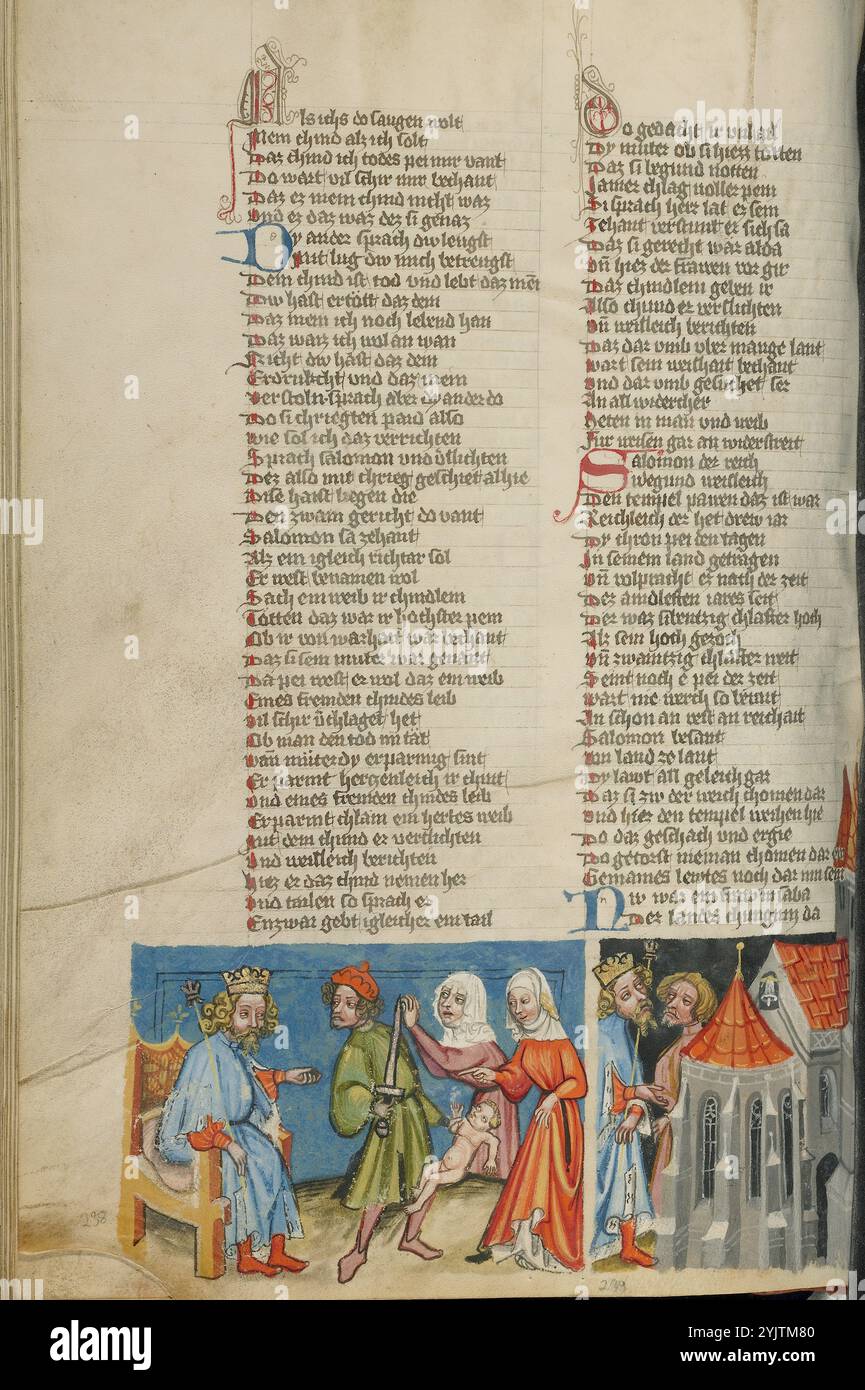 Als ichs do saugen wolt
Mein chind alz ich solt
Daz chind ich todes pei mir vant
Do wart vil schir mir bechant
Daz ez mein chind nicht waz
Und ez daz waz dez si genaz
Dy ander sprach diw leugst
Mit lug diw mich betreugst
Dein chind ist tod und lebt daz mein
Diw hast ertött daz dein
Daz mein ich noch lebend han
Daz waiz ich wol an wan
Nicht diw hast daz dein
Erdrukcht und daz mein
Verstoln sprach aber dy ander do
Do si chriegten paid also
Wie sol ich daz verrichten
Sprach salomon und v̂slichten
Dez also mit chrieg geschiet alhie
Dise haist hegen die
Den zwain gericht do vant
Salomon sa zehant
Alz ein igleich richtar sol
Er west benamen wol
Sach ein weib ir chindlein
Tötten daz war ir hochster pein
Ob ir von warhait war bechant
Daz si sein muter war genant
Da pei west er wol daz ein weib
Eines fremden chindes leib
Vil schir v̂chlaget het
Ob man den tod im tät
Wan̄ müter dy erparmig sint
Er parmt hergenleich ir chint
Und eines fremden chindes leib
Erparmt chlain ein hertes weib
Mit dem chind er verslichten
Und weisleich berichten
Hiez er daz chind nemen her
Und tailen so sprach er
Enzwai gebt igleicher ein tail
Do gedacht ir
Dy muter ob si hiezz totten
Daz si begund notten
Jamer chlag voller pein
Si sprach herr lat ez sein
Zehant verstunt er sich sa
Daz si gerecht war alda
Vn̄ hiez der frawen vor gir
Daz chindlein geben ir
Also chund er verslichten
Vn̄ weisleich berichten
Daz dar umb vber mange lant
Wart sein weishait bechant
Und dar umb gesuchet ser
An all widercher
Heten in man und weib
Fur weisen gar an widerstreit
Salomon der reich
Wegund weisleich
Den tempel pawen daz ist war
Reichleich der het drew iar
Dy chron pei den tagen
In seinem land getragen
Vn̄ volpracht ez nach der zeit
Dez aindleften iares seit
Der waz sibentzig chlafter hoch
Alz sein hoch gezoch
Vn̄ zwaintzig chlafter weit
Seint noch e pei der zeit
Wart nie werch so benant
An schon an vest an reichait
Salomon besant
Von land ze lant
Dy lawt all geleich gar
Daz si zw der weich chomen dar
Und hiez den tempel weihen hie
Do daz geschach und ergie
Do getorst nieman chomen dar ein
Gemaines lewtes noch dar inn sein
Nw war ein saba
Der landes chungin da
298
299
alamy
Image ID: 2YJTM80
www.alamy.com